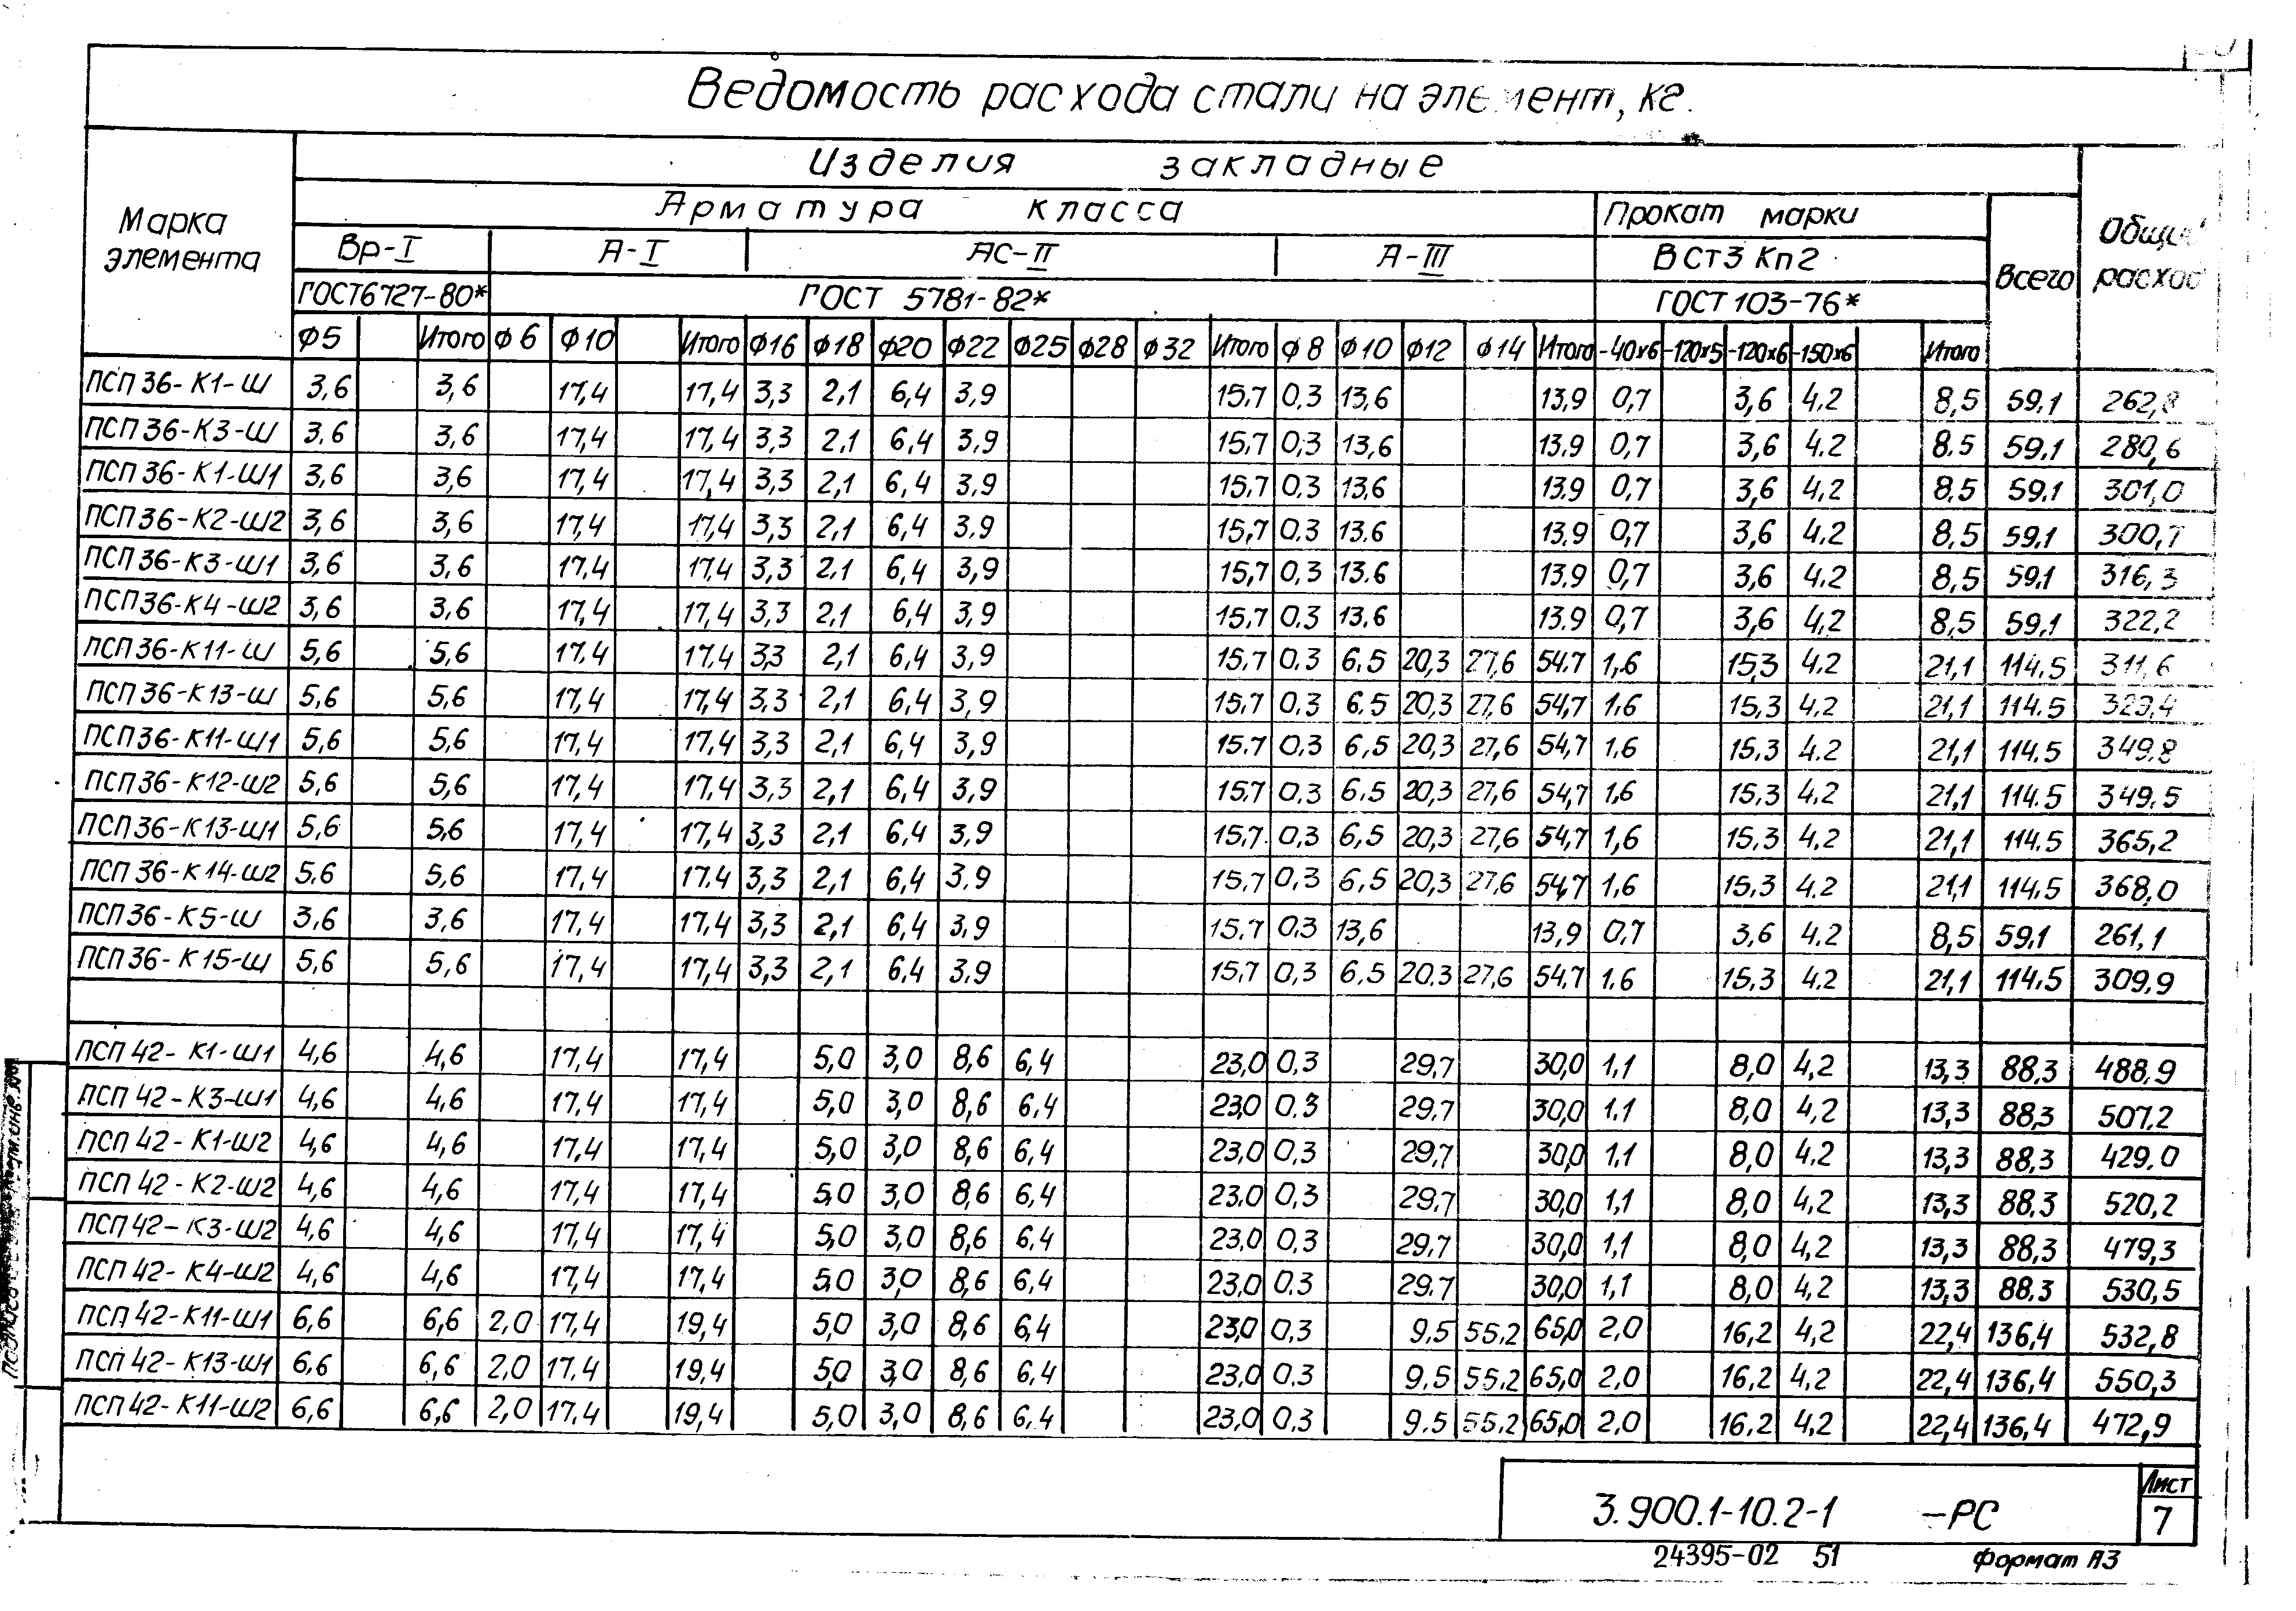 Ведомость расхода стали на элемент, кг.
Марка элемента
Изделия закладные
Общий расход
Арматура класса
Прокат марки
Всего
Вр-I А-I АС-II А-III ВСт3Кп2
ГОСТ6727-80* ГОСТ 5781-82* ГОСТ 103-76*
Ф5 Итого Ф6 Ф10 Итого Ф16 Ф18 Ф20 Ф22 Ф25 Ф28 Ф32 Итого Ф8 Ф10 Ф12 Ф14 Итого -40х6 -120х5 -120х6 -150х6 Итого
ПСП36-К1-Ш 3,6 3,6 17,4 17,4 3,3 2,1 6,4 3,9 15,7 0,3 13,6 13,9 0,7 3,6 4,2 8,5 59,1 262,8
ПСП36-К3-Ш 3,6 3,6 17,4 17,4 3,3 2,1 6,4 3,9 15,7 0,3 13,6 13,9 0,7 3,6 4,2 8,5 59,1 280,6
ПСП36-К1-Ш1 3,6 3,6 17,4 17,4 3,3 2,1 6,4 3,9 15,7 0,3 13,6 13,9 0,7 3,6 4,2 8,5 59,1 301,0
ПСП36-К2-Ш2 3,6 3,6 17,4 17,4 3,3 2,1 6,4 3,9 15,7 0,3 13,6 13,9 0,7 3,6 4,2 8,5 59,1 300,7
ПСП36-К3-Ш1 3,6 3,6 17,4 17,4 3,3 2,1 6,4 3,9 15,7 0,3 13,6 13,9 0,7 3,6 4,2 8,5 59,1 316,3
ПСП36-К4-Ш2 3,6 3,6 17,4 17,4 3,3 2,1 6,4 3,9 15,7 0,3 13,6 13,9 0,7 3,6 4,2 8,5 59,1 322,2
ПСП36-К11-Ш 5,6 5,6 17,4 17,4 3,3 2,1 6,4 3,9 15,7 0,3 6,5 20,3 27,6 54,7 1,6 15,3 4,2 21,1 114,5 311,6
ПСП36-К13-Ш 5,6 5,6 17,4 17,4 3,3 2,1 6,4 3,9 15,7 0,3 6,5 20,3 27,6 54,7 1,6 15,3 4,2 21,1 114,5 329,4
ПСП36-К11-Ш1 5,6 5,6 17,4 17,4 3,3 2,1 6,4 3,9 15,7 0,3 6,5 20,3 27,6 54,7 1,6 15,3 4,2 21,1 114,5 349,8
ПСП36-К12-Ш2 5,6 5,6 17,4 17,4 3,3 2,1 6,4 3,9 15,7 0,3 6,5 20,3 27,6 54,7 1,6 15,3 4,2 21,1 114,5 349,5
ПСП36-К13-Ш1 5,6 5,6 17,4 17,4 3,3 2,1 6,4 3,9 15,7 0,3 6,5 20,3 27,6 54,7 1,6 15,3 4,2 21,1 114,5 365,2
ПСП36-К14-Ш2 5,6 5,6 17,4 17,4 3,3 2,1 6,4 3,9 15,7 0,3 6,5 20,3 27,6 54,7 1,6 15,3 4,2 21,1 114,5 368,0
ПСП36-К5-Ш 3,6 3,6 17,4 17,4 3,3 2,1 6,4 3,9 15,7 0,3 13,6 13,9 0,7 3,6 4,2 8,5 59,1 261,1
ПСП36-К15-Ш 5,6 5,6 17,4 17,4 3,3 2,1 6,4 3,9 15,7 0,3 6,5 20,3 27,6 54,7 1,6 15,3 4,2 21,1 114,5 309,9
ПСП42-К1-Ш1 4,6 4,6 17,4 17,4 5,0 3,0 8,6 6,4 23,0 0,3 29,7 30,0 1,1 8,0 4,2 13,3 88,3 488,9
ПСП42-К3-Ш1 4,6 4,6 17,4 17,4 5,0 3,0 8,6 6,4 23,0 0,3 29,7 30,0 1,1 8,0 4,2 13,3 88,3 507,2
ПСП42-К1-Ш2 4,6 4,6 17,4 17,4 5,0 3,0 8,6 6,4 23,0 0,3 29,7 30,0 1,1 8,0 4,2 13,3 88,3 429,0
ПСП42-К2-Ш2 4,6 4,6 17,4 17,4 5,0 3,0 8,6 6,4 23,0 0,3 29,7 30,0 1,1 8,0 4,2 13,3 88,3 520,2
ПСП42-К3-Ш2 4,6 4,6 17,4 17,4 5,0 3,0 8,6 6,4 23,0 0,3 29,7 30,0 1,1 8,0 4,2 13,3 88,3 479,3
ПСП42-К4-Ш2 4,6 4,6 17,4 17,4 5,0 3,0 8,6 6,4 23,0 0,3 29,7 30,0 1,1 8,0 4,2 13,3 88,3 530,5
ПСП42-К11-Ш1 6,6 6,6 2,0 17,4 19,4 5,0 3,0 8,6 6,4 23,0 0,3 9,5 55,2 65,0 2,0 16,2 4,2 22,4 136,4 532,8
ПСП42-К13-Ш1 6,6 6,6 2,0 17,4 19,4 5,0 3,0 8,6 6,4 23,0 0,3 9,5 55,2 65,0 2,0 16,2 4,2 22,4 136,4 550,3
ПСП42-К11-Ш2 6,6 6,6 2,0 17,4 19,4 5,0 3,0 8,6 6,4 23,0 0,3 9,5 55,2 65,0 2,0 16,2 4,2 22,4 136,4 472,9
3.900.1-10.2-1 -РС
Лист
7
24395-02 51 формат А3